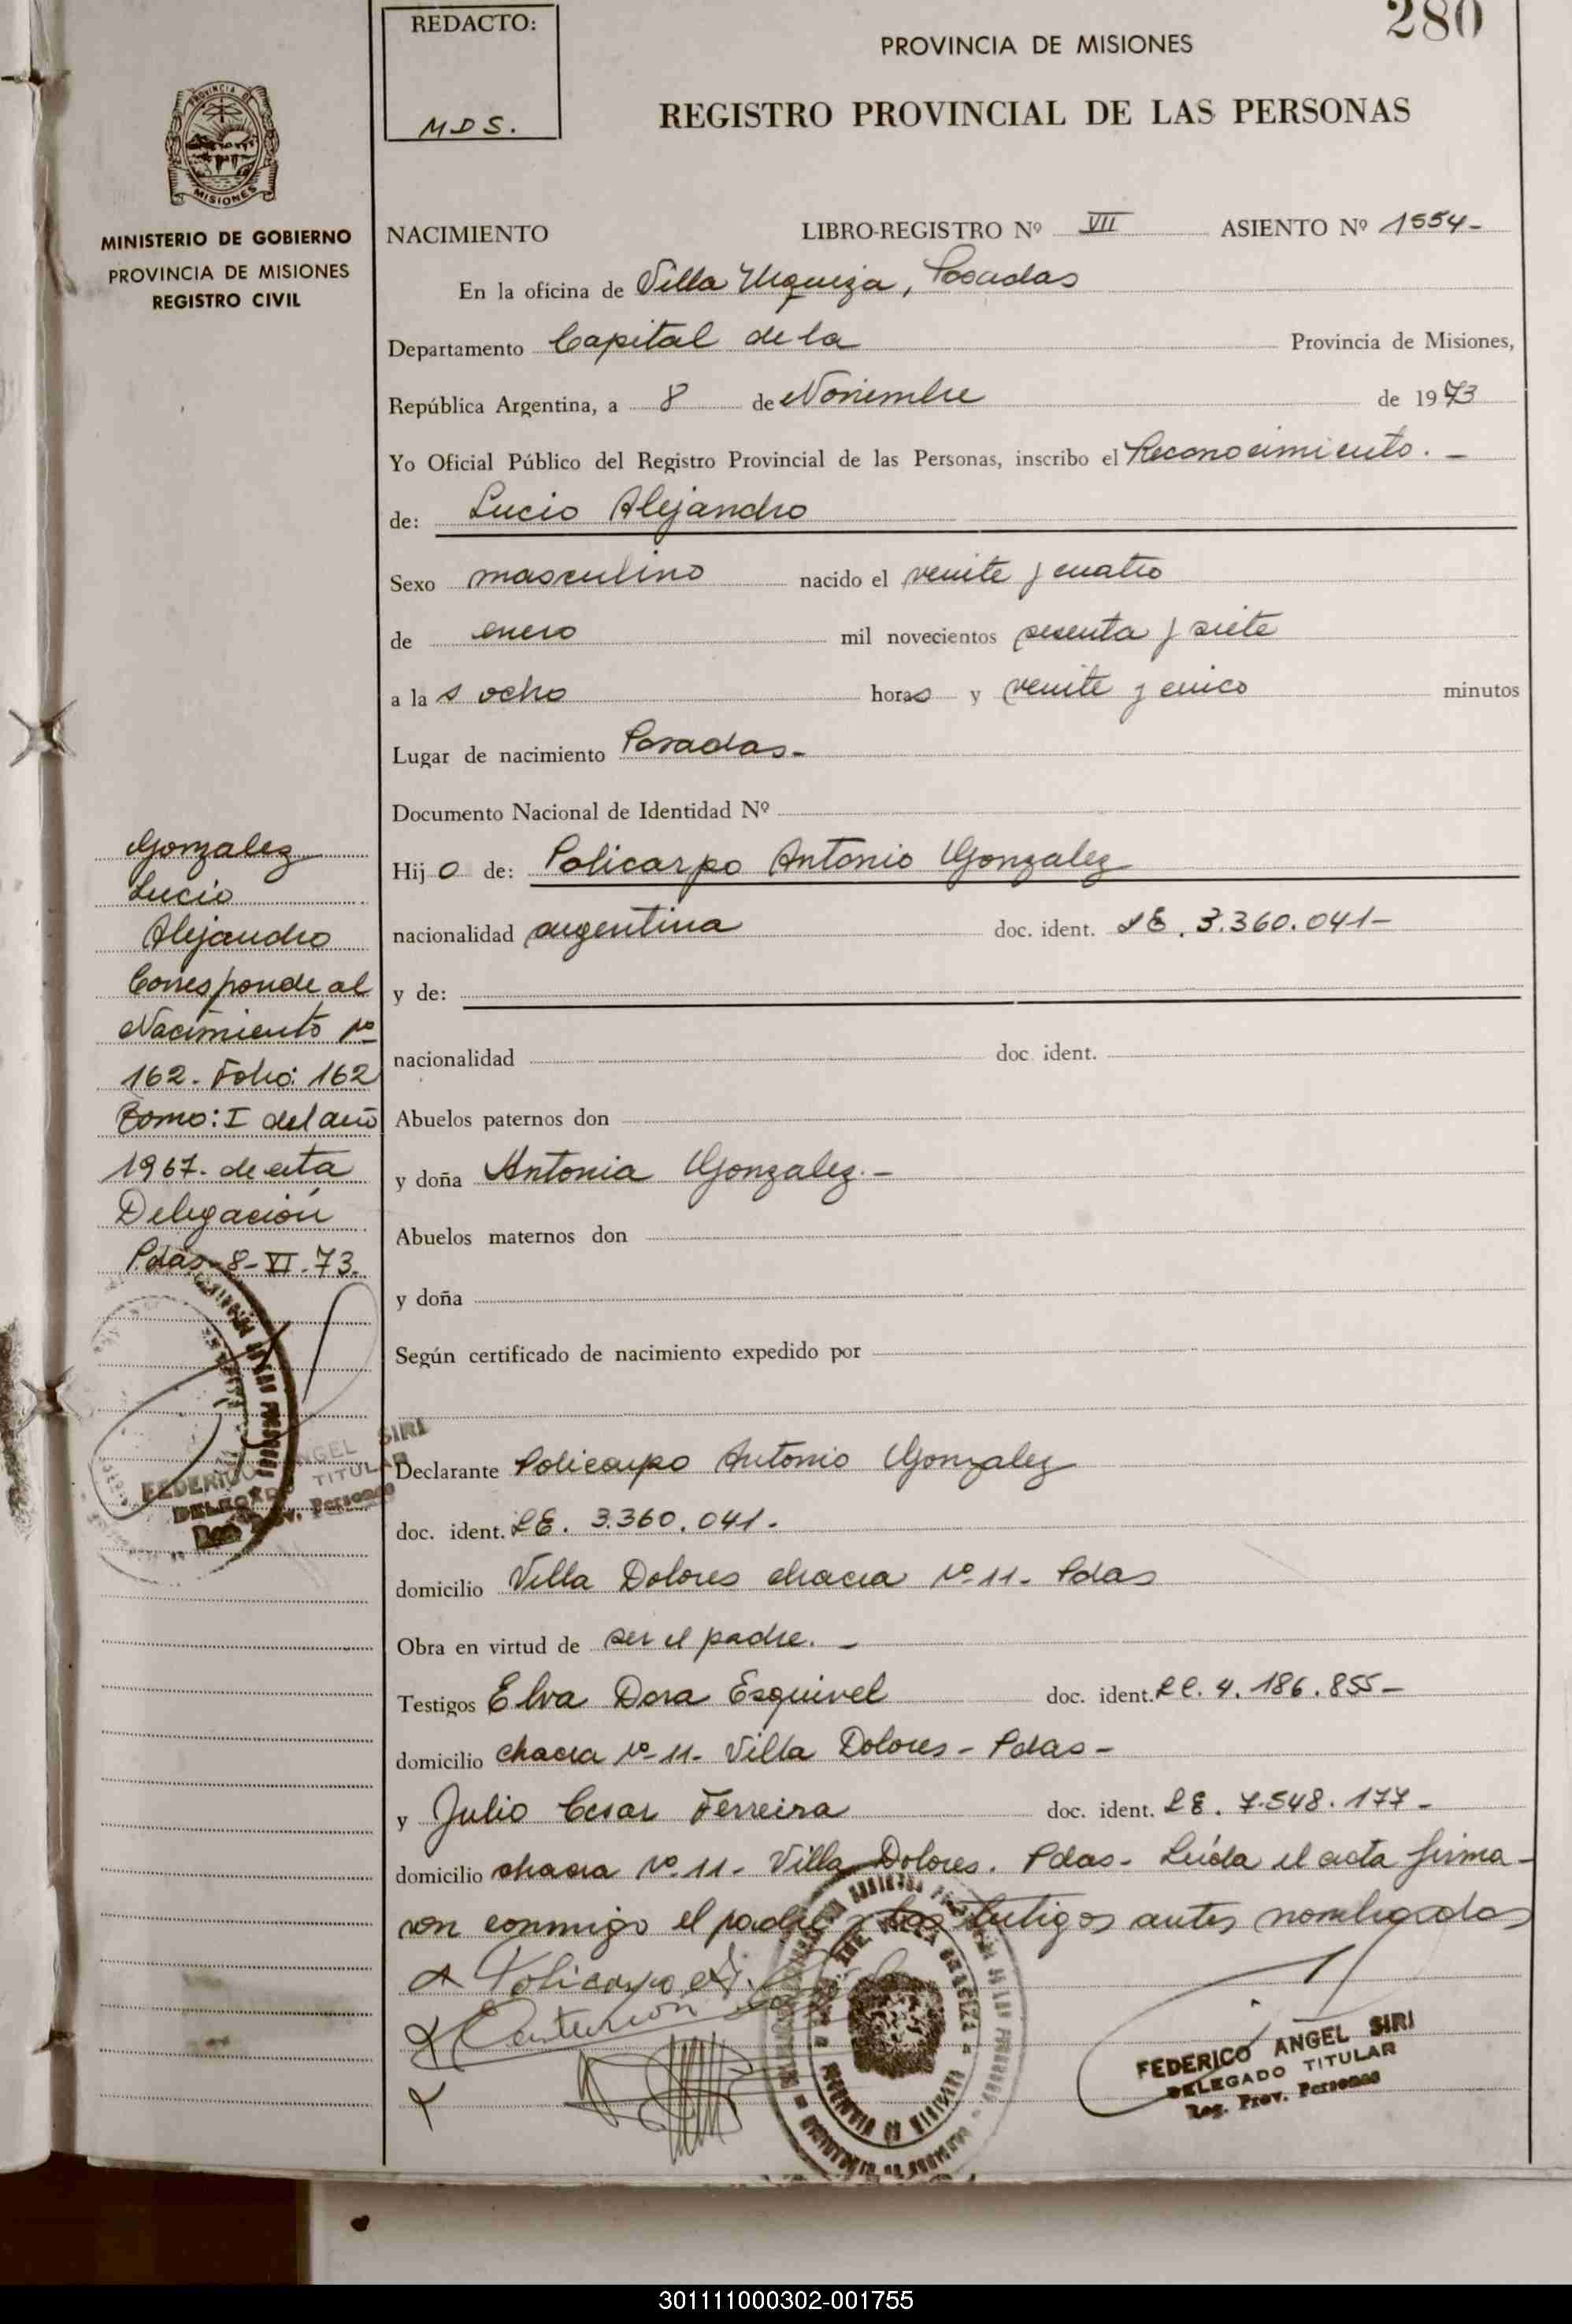 280
REDACTO:
M.D.S.
PROVINCIA DE MISIONES
REGISTRO PROVINCIAL DE LAS PERSONAS
PROVINCIA DE
MISIONES
MINISTERIO DE GOBIERNO
PROVINCIA DE MISIONES
REGISTRO CIVIL
NACIMIENTO LIBRO-REGISTRO Nº VII ASIENTO Nº 1554-
En la oficina de Villa Urquiza, Posadas
Departamento Capital de la Provincia de Misiones,
República Argentina, a 8 de Noviembre de 1973
Yo Oficial Público del Registro Provincial de las Personas, inscribo el Reconocimiento. -
de: Lucio Alejandro
Sexo masculino nacido el veinte y cuatro
de enero mil novecientos sesenta y siete
a las ocho horas y veinte y cinco minutos
Lugar de nacimiento Posadas-
Documento Nacional de Identidad Nº
Hijo de: Policarpo Antonio Gonzalez
nacionalidad argentina doc. ident. LE. 3.360.041-
y de:
nacionalidad doc ident.
Abuelos paternos don
y doña Antonia Gonzalez.-
Abuelos maternos don
y doña
Según certificado de nacimiento expedido por
Declarante Policarpo Antonio Gonzalez
doc. ident. LE. 3.360.041.
domicilio Villa Dolores chacra Nº 11. Pdas
Obra en virtud de ser el padre. -
Testigos Elva Dora Esquivel doc. ident. LC. 4.186.855-
domicilio chacra Nº 11- Villa Dolores - Pdas-
y Julio Cesar Ferreira doc. ident. LE. 7.548.177-
domicilio chacra Nº 11- Villa Dolores. Pdas- Leída el acta firma-
ron conmigo el padre y los testigos antes nombrados
Gonzalez
Lucio
Alejandro
Corresponde al
Nacimiento Nº
162. Folio: 162
Tomo: I del año
1967. de esta
Delegación
Pdas- 8-XI-73.
FEDERICO ANGEL SIRI
DELEGADO TITULAR
Reg. Prov. Personas
Policarpo A.
FEDERICO ANGEL SIRI
DELEGADO TITULAR
Reg. Prov. Personas
301111000302-001755